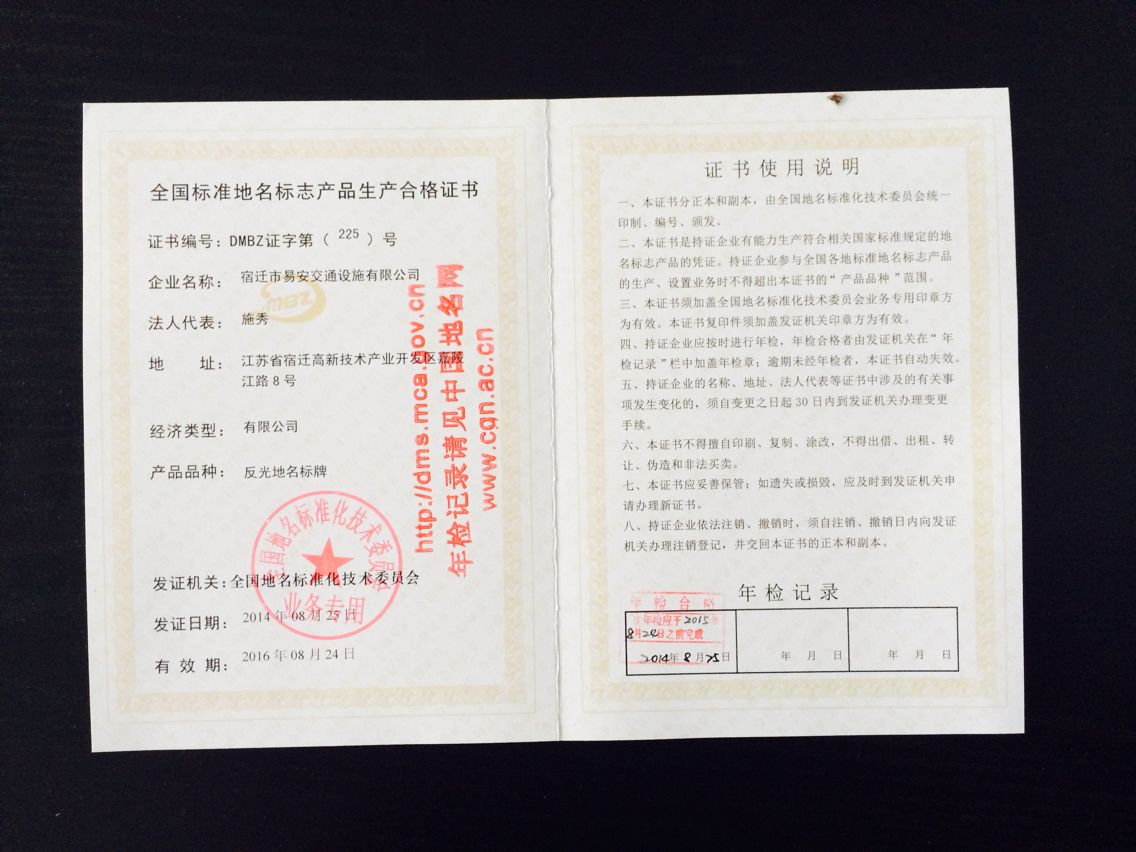 全国标准地名标志产品生产合格证书
证书编号：DMBZ证字第（ 225 ）号
企业名称： 宿迁市易安交通设施有限公司
DMBZ
法人代表： 施秀
地 址： 江苏省宿迁高新技术产业开发区嘉陵
江路8号
经济类型： 有限公司
产品品种： 反光地名标牌
http://dms.mca.gov.cn
年检记录请见中国地名网
www.cgn.ac.cn
全国地名标准化技术委员会
业务专用
发证机关：全国地名标准化技术委员会
发证日期： 2014年08月25日
有 效 期： 2016年08月24日
证书使用说明
一、本证书分正本和副本，由全国地名标准化技术委员会统一
印制、编号、颁发。
二、本证书是持证企业有能力生产符合相关国家标准规定的地
名标志产品的凭证。持证企业参与全国各地标准地名标志产品
的生产、设置业务时不得超出本证书的“产品品种”范围。
三、本证书须加盖全国地名标准化技术委员会业务专用印章方
为有效。本证书复印件须加盖发证机关印章方为有效。
四、持证企业应按时进行年检，年检合格者由发证机关在“年
检记录”栏中加盖年检章；逾期未经年检者，本证书自动失效。
五、持证企业的名称、地址、法人代表等证书中涉及的有关事
项发生变化的，须自变更之日起30日内到发证机关办理变更
手续。
六、本证书不得擅自印刷、复制、涂改，不得出借、出租、转
让、伪造和非法买卖。
七、本证书应妥善保管；如遗失或损毁，应及时到发证机关申
请办理新证书。
八、持证企业依法注销、撤销时，须自注销、撤销日内向发证
机关办理注销登记，并交回本证书的正本和副本。
年检记录
年检合格
年检应于2015年
8月24日之前完成
2014年8月25日
年 月 日
年 月 日